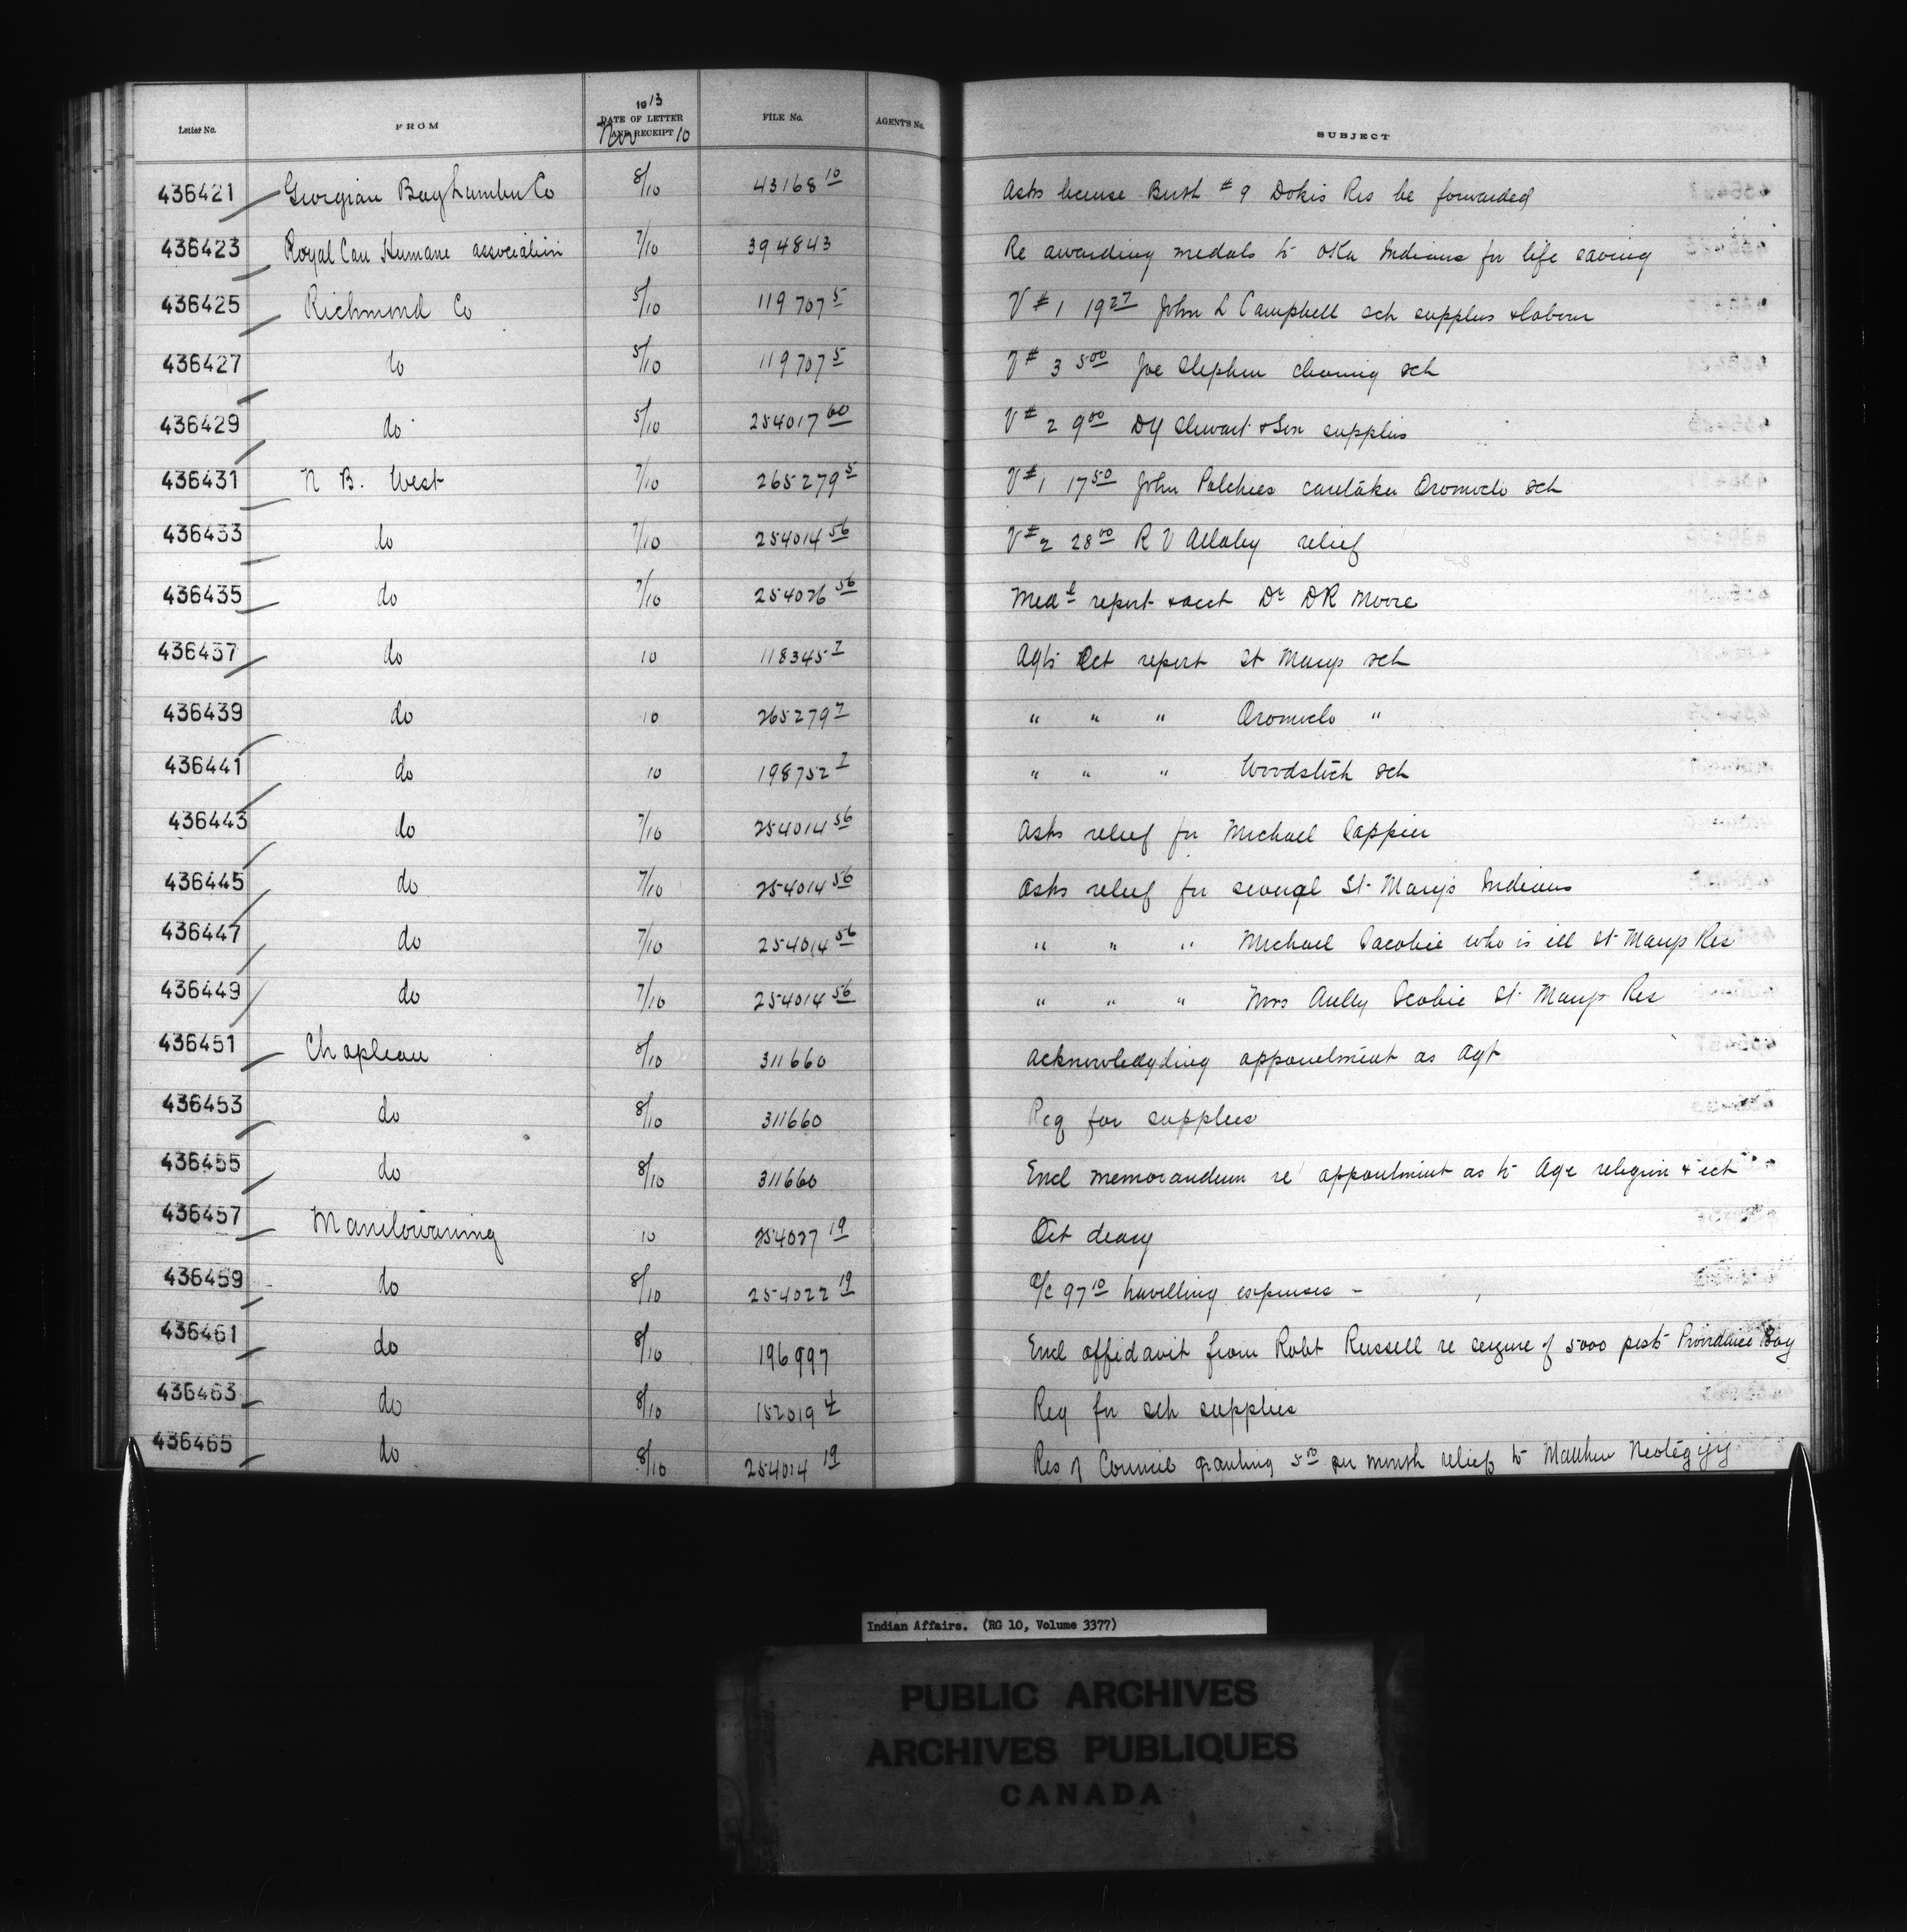 Letter No. FROM 1913 DATE OF LETTER AND RECEIPT Nov 10 FILE No. AGENT'S No. SUBJECT
436421 Georgian Bay Lumber Co 8/10 43168 10 Asks license Berth # 9 Dokis Res be forwarded
436423 Royal Can Humane association 7/10 394843 Re awarding medals to Oka Indians for life saving
436425 Richmond Co 5/10 119707 5 V # 1 19 27 John L Campbell sch supplies & labour
436427 do 5/10 119707 5 V # 3 5 00 Joe Stephen cleaning sch
436429 do 5/10 254017 60 V # 2 9 00 DY Stewart & Son supplies
436431 N B. West 7/10 265279 5 V # 1 17 50 John Polchies caretaker Oromocto sch
436433 do 7/10 254014 56 V # 2 28 00 R V Allaby relief
436435 do 7/10 254026 56 Med l report & acct Dr DR Moore
436437 do 10 118345 7 Agts Oct report St Marys sch
436439 do 10 265279 7 " " " Oromocto "
436441 do 10 198752 7 " " " Woodstock sch
436443 do 7/10 254014 56 Asks relief for Michael Sappier
436445 do 7/10 254014 56 Asks relief for several St. Mary's Indians
436447 do 7/10 254014 56 " " " Michael Sacobie who is ill St Marys Res
436449 do 7/10 254014 56 " " " Mrs Scobie St. Marys Res
436451 Chapleau 8/10 311660 acknowledgding appointment as Agt
436453 do 8/10 311660 Req for supplies
436455 do 8/10 311660 Encl memorandum re appointment as to Age religion & ect
436457 Manitowaning 10 254027 19 Oct diary
436459 do 8/10 254022 19 a/c 97 10 travelling expenses -
436461 do 8/10 196997 Encl affidavit from Robt Russell re seizure of 5000 posts Providence Bay
436463 do 8/10 152019 4 Req for sch supplies
436465 do 8/10 254014 19 Res of Council granting 5 00 per month relief to Matthew
Indian Affairs. (RG 10, Volume 3377)
PUBLIC ARCHIVES
ARCHIVES PUBLIQUES
CANADA